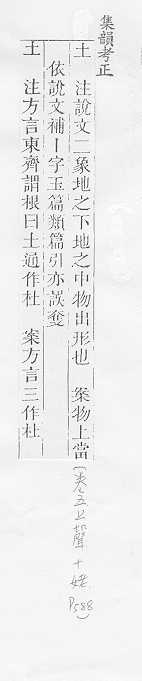 集韻考正
土 注說文二象地之下地之中物出形也 案物上當
依說文補丨字玉篇類篇引亦誤奪
土 注方言東齊謂根曰土通作杜 案方言三作杜
(卷五上聲十姥
P588)